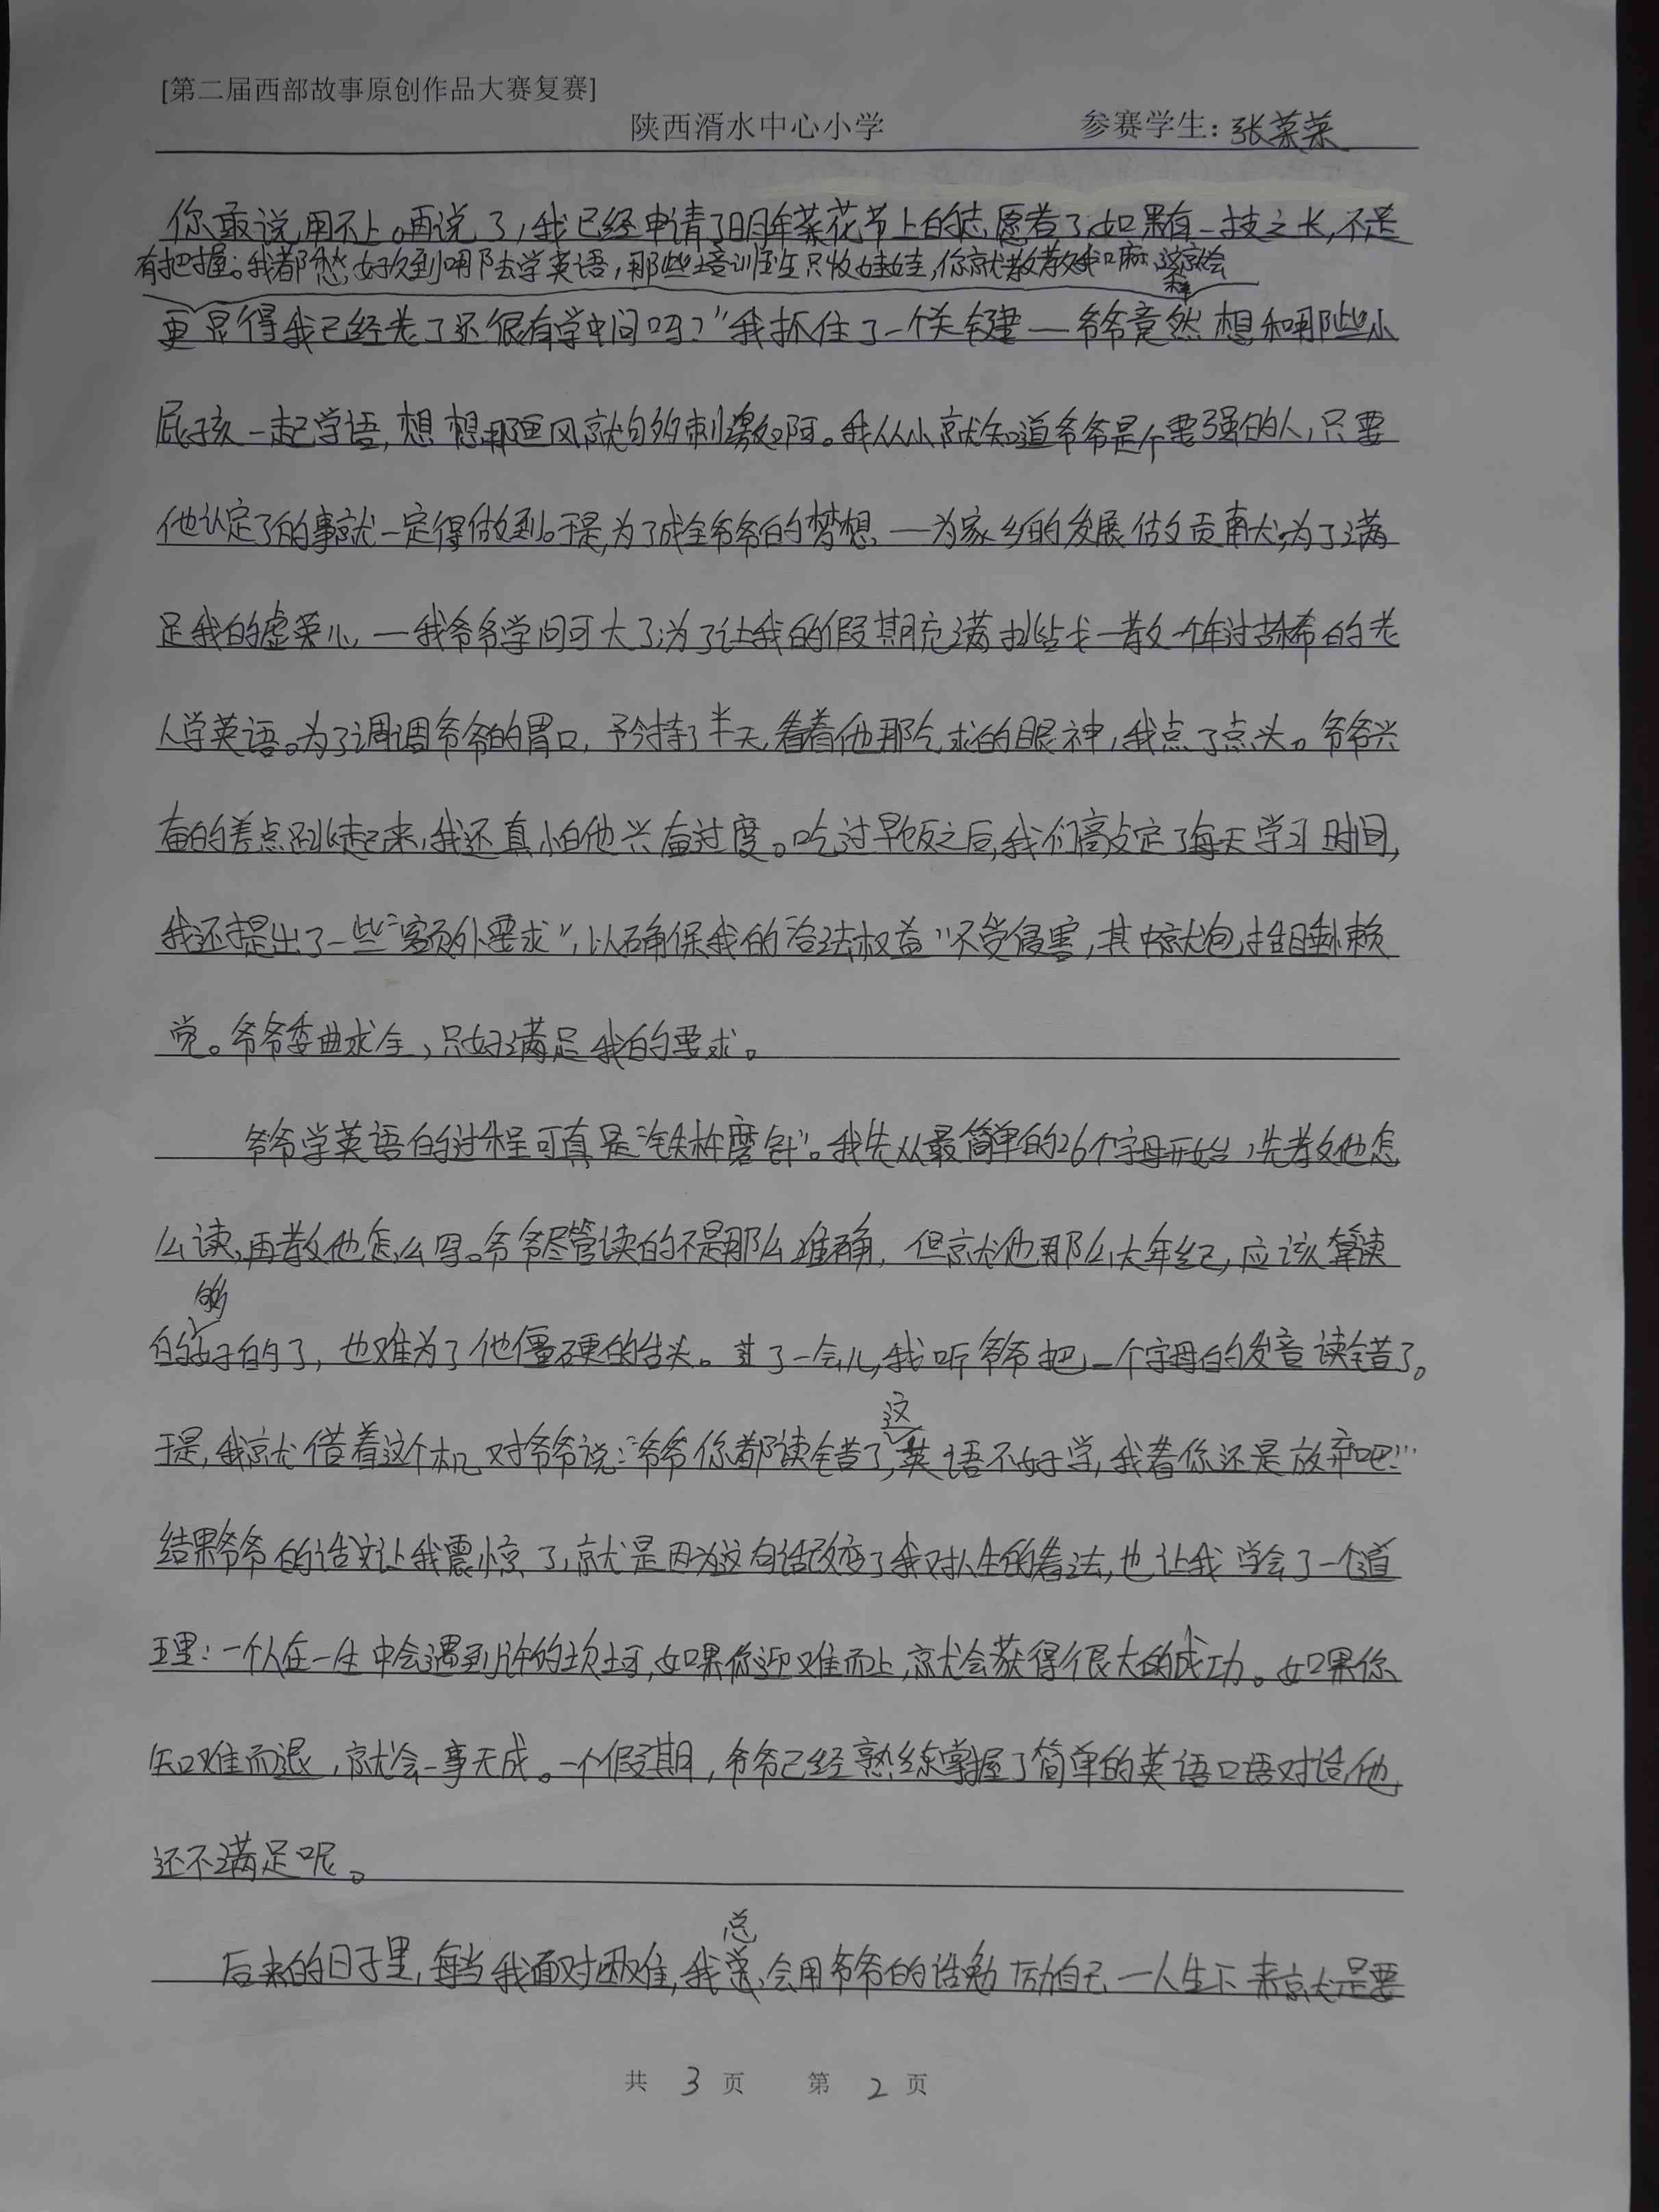 [第二届西部故事原创作品大赛复赛]
陕西湑水中心小学 参赛学生：张菜菜
你敢说用不上。再说了，我已经申请了明年菜花节上的志愿者了，如果有一技之长，不是
有把握。我都愁，好多到哪去学英语，那些培训班只收娃娃，你就教教我嘛，这样就会
更显得我已经老了还很有学问吗？”我抓住了一个关键——爷爷竟然想和那些小
屁孩一起学语，想想那画风就句够刺激的啊。我从小就知道爷爷是个要强的人，只要
他认定了的事就一定得做到。于是，为了成全爷爷的梦想，—为家乡的发展做贡献，为了满
足我的虚荣心，—我爷爷学问可大了，为了让我的假期充满挑战—教一个年过古稀的老
人学英语。为了调调爷爷的胃口，矜持了半天，看着他那乞求的眼神，我点了点头。爷爷兴
奋的差点跳起来，我还真怕他兴奋过度。吃过早饭之后，我们高敲定了每天学习时间，
我还提出了一些“额外要求”，以确保我的“合法权益”不受侵害，其中就包括睡懒
觉。爷爷委曲求全，只好满足我的要求。
爷爷学英语的过程可真是“铁杵磨针”。我先从最简单的26个字母开始，先教他怎
么读，再教他怎么写。爷爷尽管读的不是那么准确，但就他那么大年纪，应该算读
的够好的了，也难为了他僵硬的舌头。过了一会儿，我听爷爷把一个字母的发音读错了。
于是，我就借着这个机对爷爷说：“爷爷你都读错了，这英语不好学，我看你还是放弃吧！”
结果爷爷的话却让我震惊了，就是因为这句话改变了我对人生的看法，也让我学会了一个道
理：一个人在一生中会遇到许的坎坷，如果你迎难而上，就会获得很大的成功。如果你
知难而退，就会一事无成。一个假期，爷爷已经熟练掌握了简单的英语口语对话，他
还不满足呢。
后来的日子里，每当我面对困难，我总会用爷爷的话勉励自己—人生下来就是要
共 3 页 第 2 页